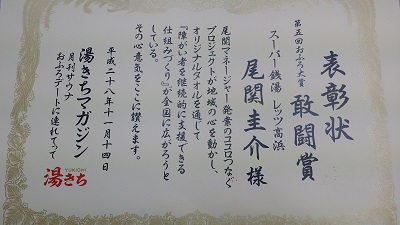 表彰状
敢闘賞
第五回おふろ大賞
スーパー銭湯 レッツ高浜
尾関圭介様
尾関マネージャー発案のココロつなぐ
プロジェクトが地域の心を動かし、
オリジナルタオルを通して
『障がい者を継続的に支援できる
仕組みづくり』が全国に広がろうと
している。
その心意気をここに讃えます。
平成二十八年十一月十四日
湯きちマガジン
月刊サウナ
おふろデートに連れてって
YUKICHI
湯きち